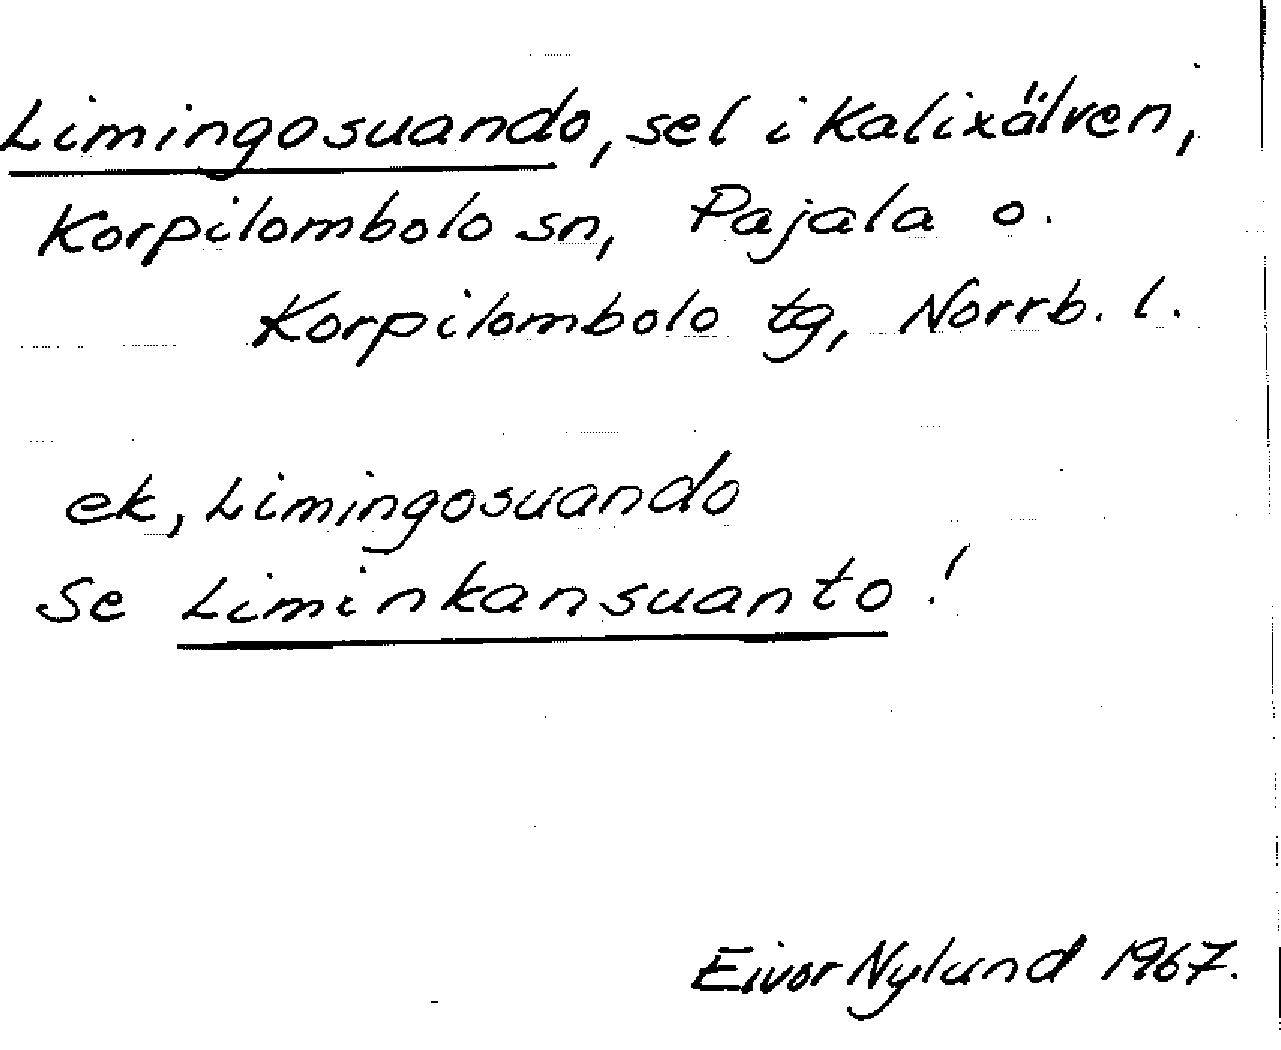 Limingosuando, sel i Kalixälven,
Korpilombolo sn, Pajala o.
Korpilombolo tg, Norrb. l.
ek, Limingosuando
Se Liminkansuanto!
Eivor Nylund 1967.